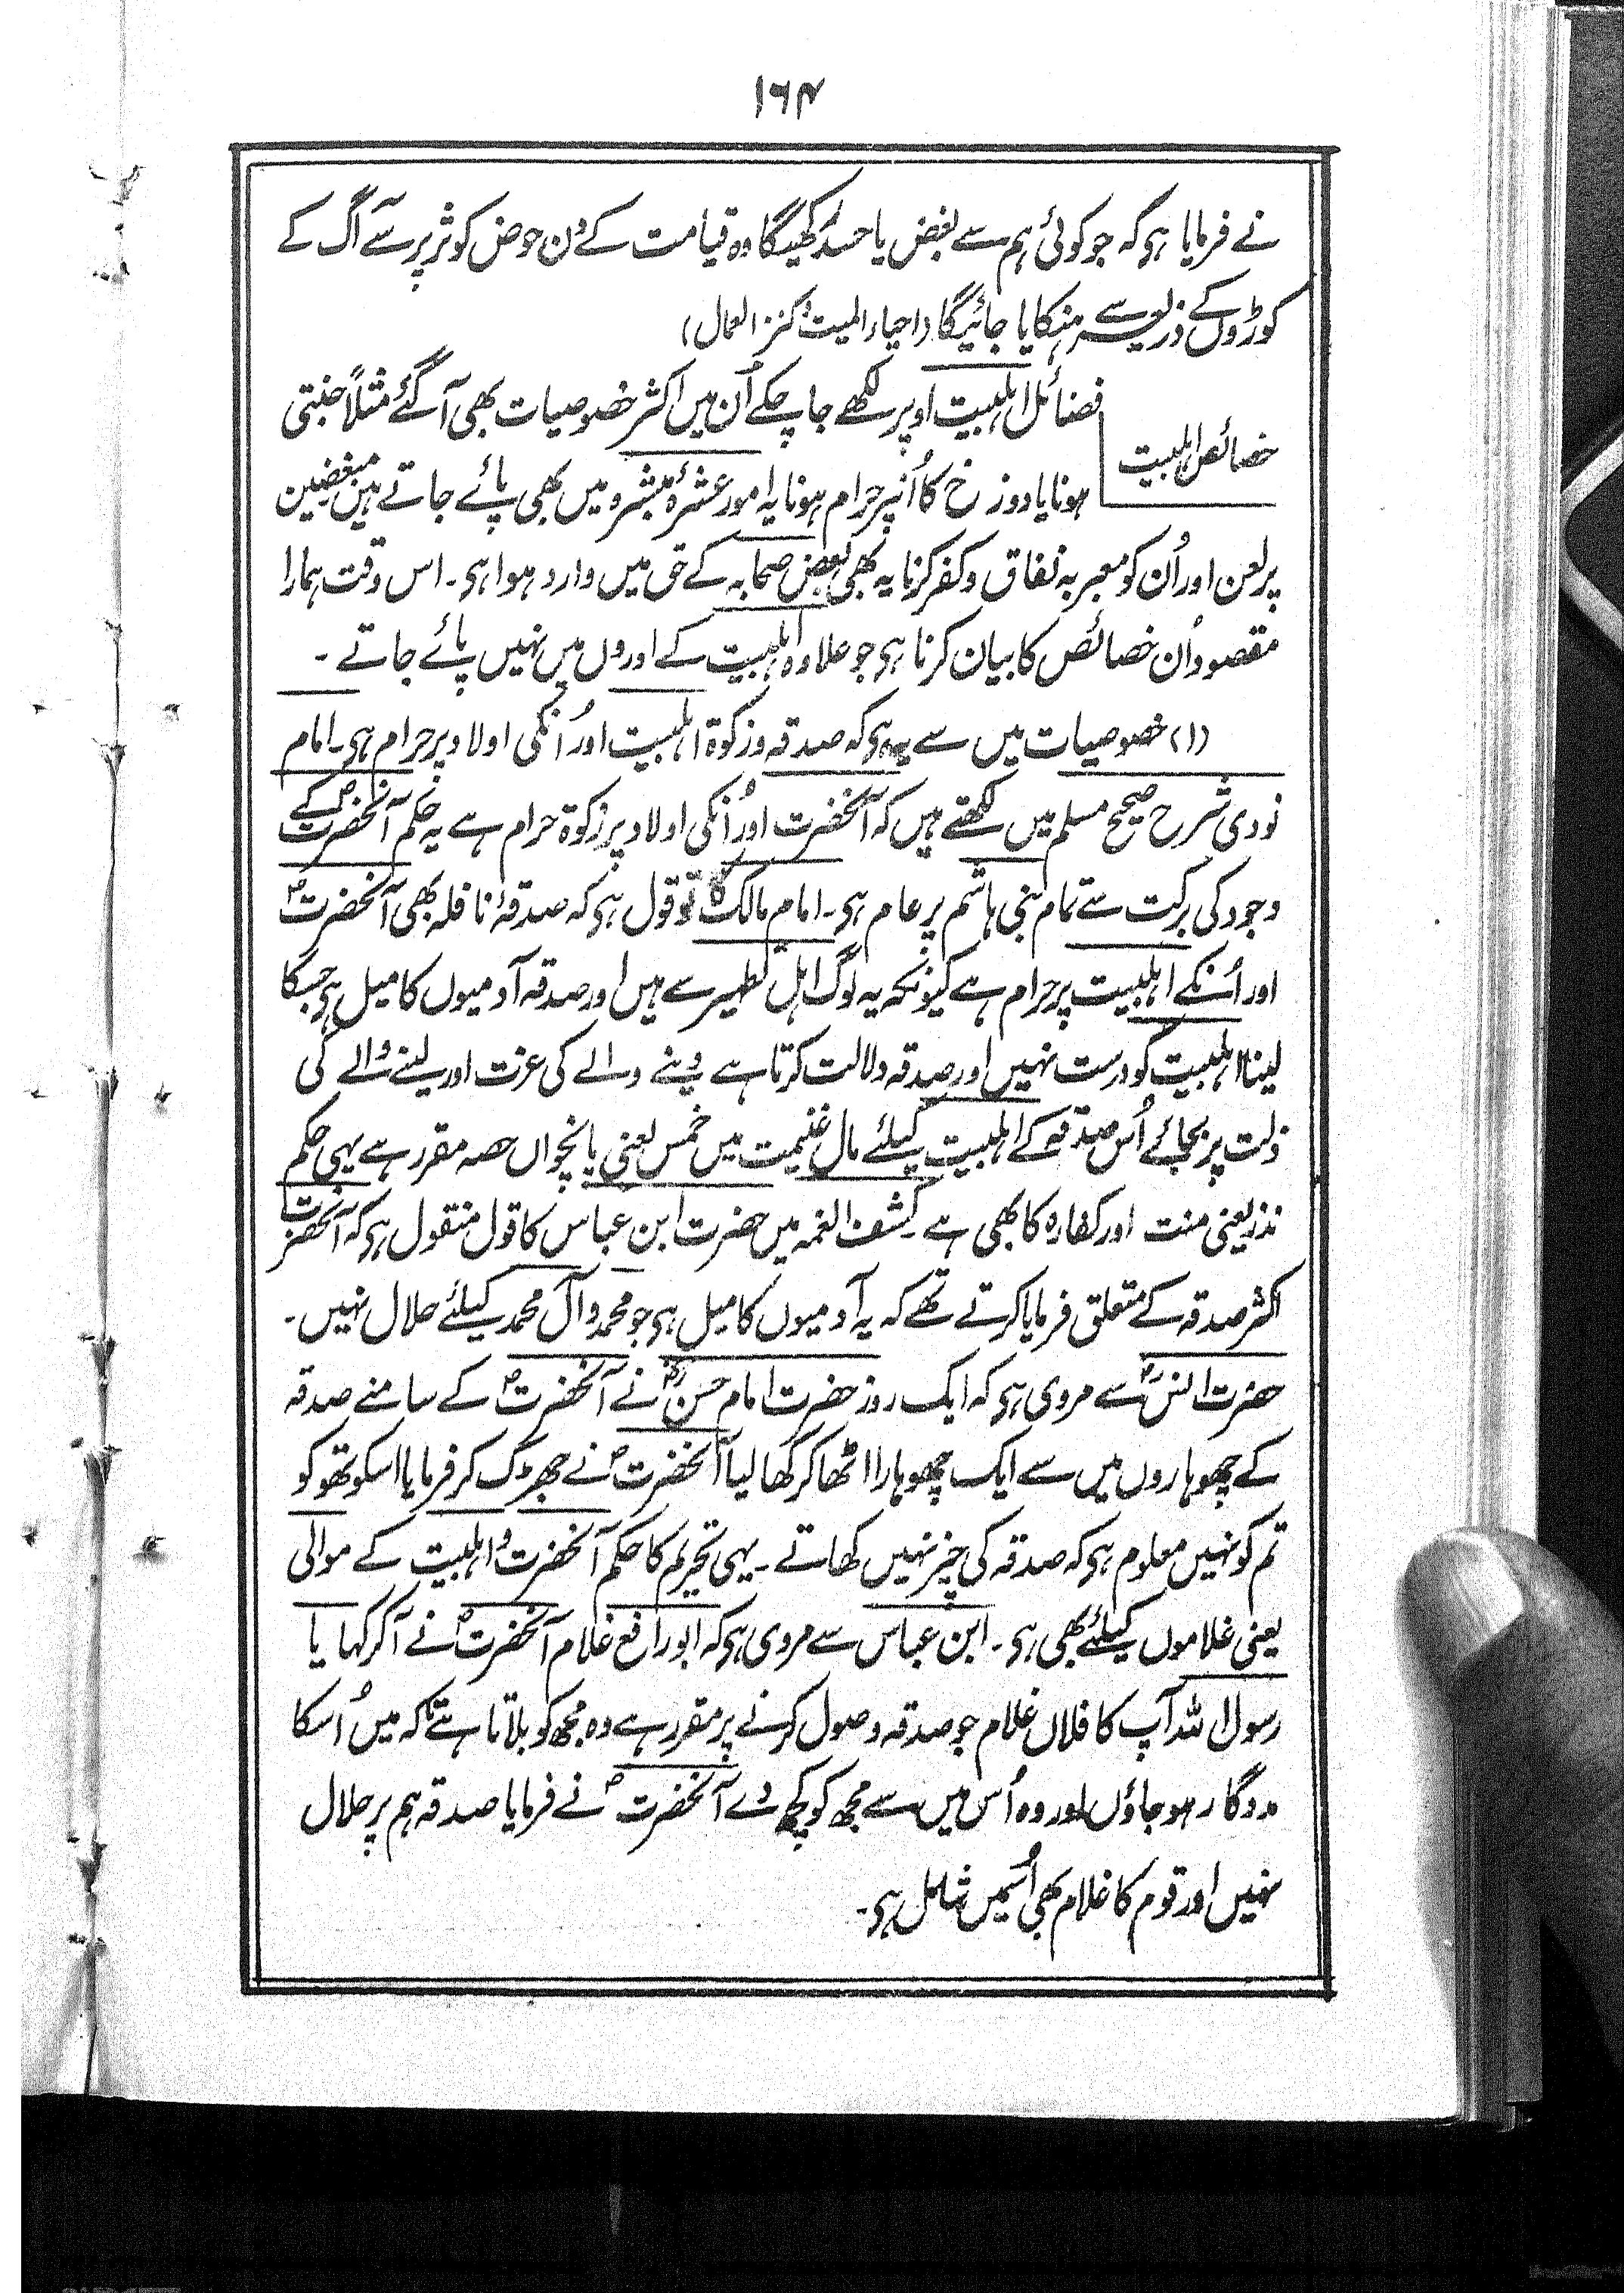 ۱۶۴
نے فرمایا ہی کہ جو کوئی ہم سے بغض یا حسد رکھیگا وہ قیامت کے دن حوض کوثر پر سے آگ کے
کوڑوں کے ذریعہ سے ہنکایا جائیگا (احیاء المیت و کنز العمال)
خصائص اہلبیت
فضائل اہلبیت اوپر لکھے جا چکے اُن میں اکثر خصوصیات بھی آگئے مثلاً جنتی
ہونا یا دوزخ کا اُنپر حرام ہونا یہ امور عشرۂ مبشرہ میں بھی پائے جاتے ہیں مبغضین
پر لعن اور اُن کو معبر بہ نفاق و کفر کرنا یہ بھی بعض صحابہ کے حق میں وارد ہوا ہی۔ اس وقت ہمارا
مقصود اُن خصائص کا بیان کرنا ہی جو علاوہ اہلبیت کے اوروں میں نہیں پائے جاتے۔
(۱) خصوصیات میں سے یہ ہی کہ صدقہ و زکوۃ اہلبیت اور اُنکی اولاد پر حرام ہی۔ امام
نووی شرح صحیح مسلم میں لکھتے ہیں کہ آنحضرت اور اُنکی اولاد پر زکوۃ حرام ہے یہ حکم آنحضرتؐ کے
وجود کی برکت سے تمام بنی ہاشم پر عام ہی۔ امام مالک کا تو قول ہی کہ صدقۂ نافلہ بھی آنحضرتؐ
اور اُنکے اہلبیت پر حرام ہے کیونکہ یہ لوگ اہل تطہیر سے ہیں اور صدقہ آدمیوں کا میل ہی جسکا
لینا اہلبیت کو درست نہیں اور صدقہ دلالت کرتا ہے دینے والے کی عزت اور لینے والے کی
ذلت پر بجائے اُس صدقہ کے اہلبیت کیلئے مال غنیمت میں خمس یعنی پانچواں حصہ مقرر ہے یہی حکم
نذر یعنی منت اور کفارہ کا بھی ہے۔ کشف الغمہ میں حضرت ابن عباس کا قول منقول ہی کہ آنحضرت
اکثر صدقہ کے متعلق فرمایا کرتے تھے کہ یہ آدمیوں کا میل ہی جو محمد و آل محمد کیلئے حلال نہیں۔
حضرت انسؓ سے مروی ہی کہ ایک روز حضرت امام حسنؓ نے آنحضرتؐ کے سامنے صدقہ
کے چھوہاروں میں سے ایک چھوہارا اٹھا کر کھا لیا آنحضرتؐ نے جھڑک کر فرمایا اسکو تھوکو
تم کو نہیں معلوم ہی کہ صدقہ کی چیز نہیں کھاتے۔ یہی تحریم کا حکم آنحضرت و اہلبیت کے موالی
یعنی غلاموں کیلئے بھی ہی۔ ابن عباس سے مروی ہی کہ ابو رافع غلام آنحضرتؐ نے آکر کہا یا
رسول اللہ آپ کا فلاں غلام جو صدقہ وصول کرنے پر مقرر ہے وہ مجھ کو بلاتا ہے تاکہ میں اُسکا
مددگار ہو جاؤں اور وہ اُس میں سے مجھ کو کچھ دے آنحضرتؐ نے فرمایا صدقہ ہم پر حلال
نہیں اور قوم کا غلام بھی اُسمیں شامل ہی۔